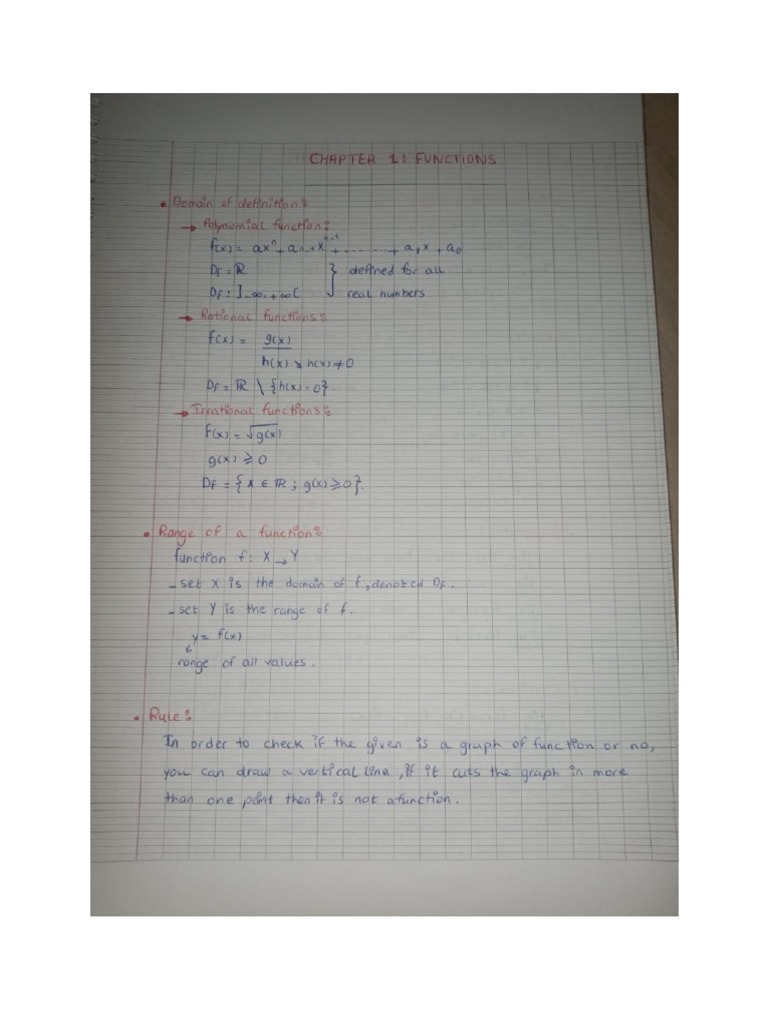 CHAPTER 1: FUNCTIONS
• Domain of definition:
→ Polynomial function:
f(x) = axⁿ + aₙ₋₁xⁿ⁻¹ + ......... + a₁x + a₀
Df = ℝ } defined for all
Df: ]-∞, +∞[ real numbers
→ Rational functions:
f(x) = g(x)
h(x) ↘ h(x) ≠ 0
Df = ℝ \ {h(x) = 0}.
→ Irrational functions:
f(x) = √g(x)
g(x) ⩾ 0
Df = {x ∈ ℝ ; g(x) ⩾ 0}.
• Range of a function:
function f: X → Y
- set X is the domain of f, denoted Df.
- set Y is the range of f.
y = f(x)
range of all values.
• Rule:
In order to check if the given is a graph of function or no,
you can draw a vertical line, if it cuts the graph in more
than one point then it is not a function.